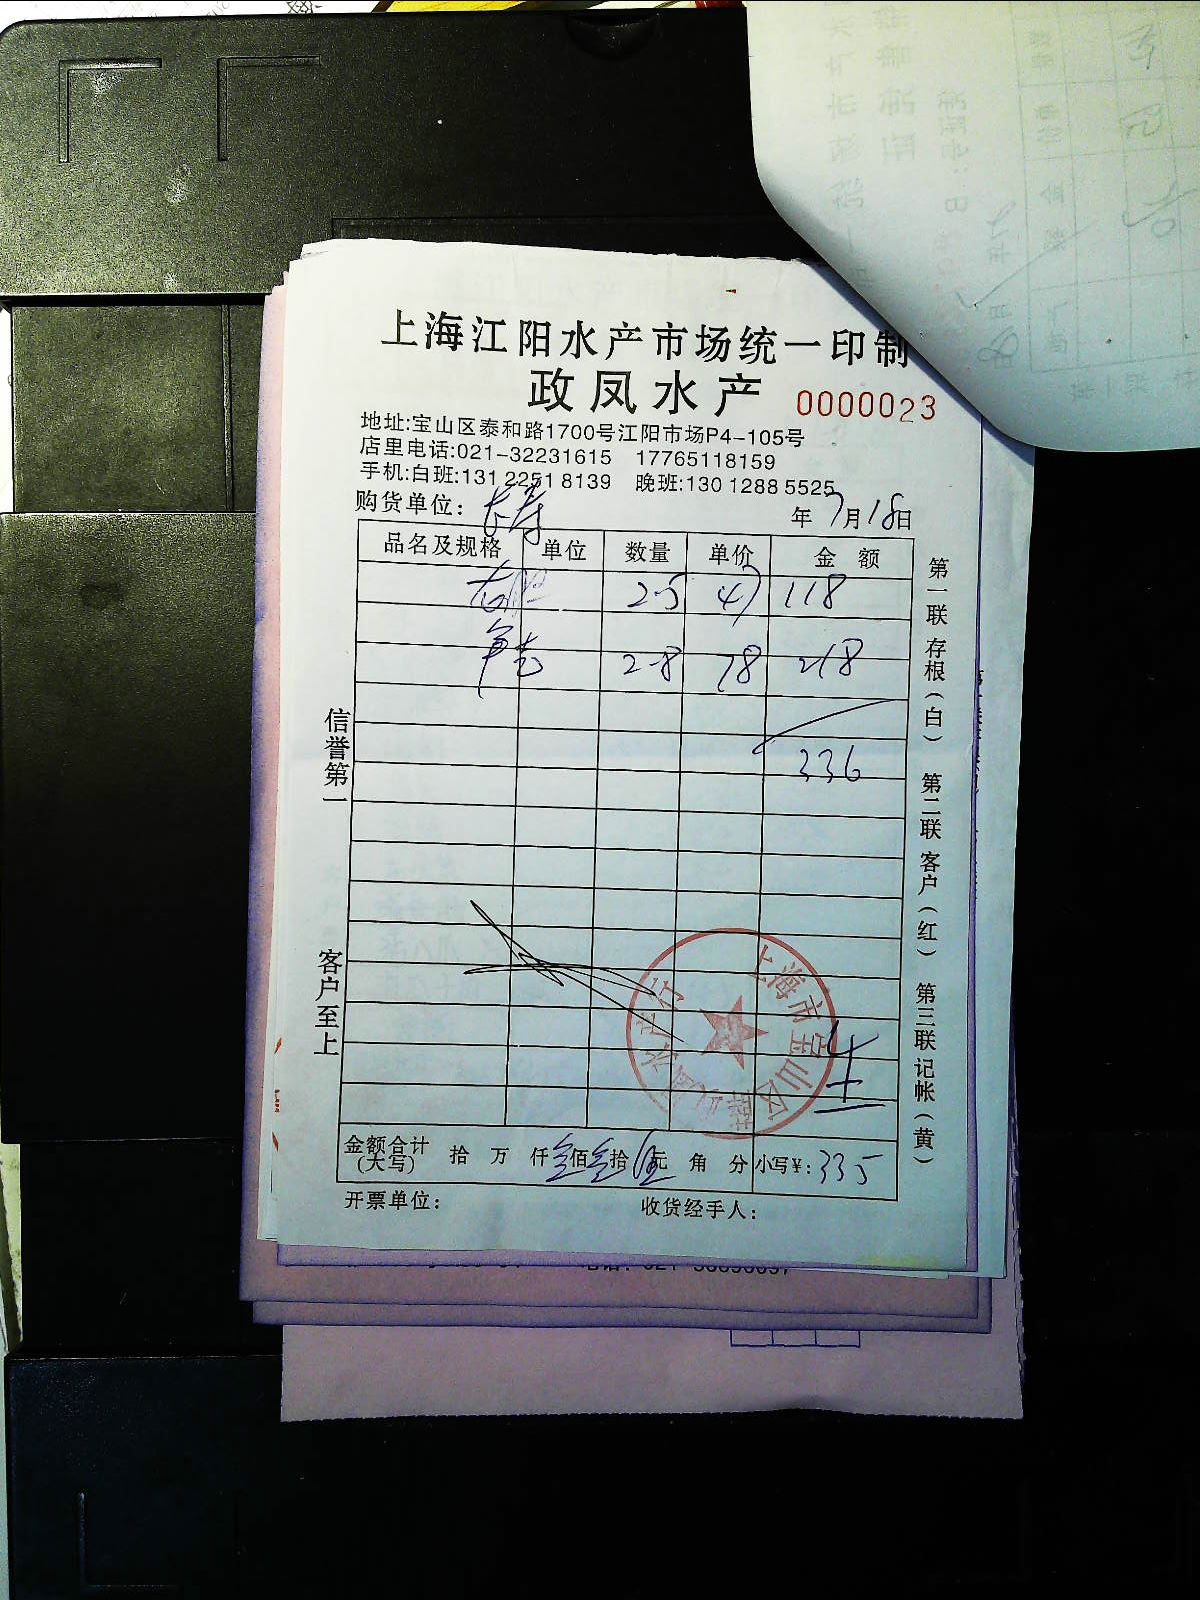 上海江阳水产市场统一印制
政凤水产 0000023
地址:宝山区泰和路1700号江阳市场P4-105号
店里电话:021-32231615 17765118159
手机:白班:131 2251 8139 晚班:130 1288 5525
购货单位: 长寿 年 7月18日
品名及规格 单位 数量 单价 金额
2-5 47 118
2-8 78 218
336
信誉第一
客户至上
第一联 存根(白) 第二联 客户(红) 第三联 记帐(黄)
上海市宝山区
水产行
金额合计(大写) 拾 万 仟 叁佰叁拾伍元 角 分 小写¥: 335
开票单位: 收货经手人: